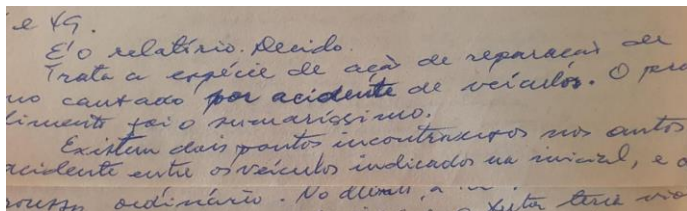 e 49.
É o relatório. Decido.
Trata a espécie de ação de reparação de
no causado por acidente de veículos. O pro
dimento foi o sumaríssimo.
Existem dois pontos incontroversos nos autos
acidente entre os veículos indicados na inicial, e o
ordinário. No
teria